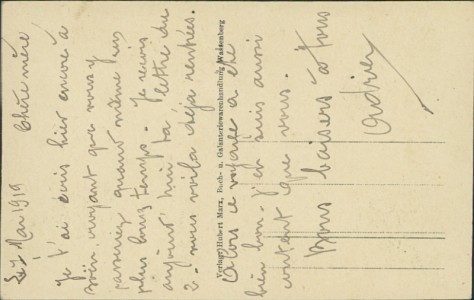 Le 7 Mai 1919 Chère mère
Je t'ai écris hier encore à
soin croyant que vous y
passeriez quand même plus
plus longtemps. Je reçois
aujourd'hui ta lettre du
2. vous voilà déjà rentrées.
Alors ce voyage a été
bien bon. J'en suis aussi
content que vous.
Bons baisers à tous
Verlag: Hubert Marx, Buch- u. Galanteriewarenhandlung Wassenberg